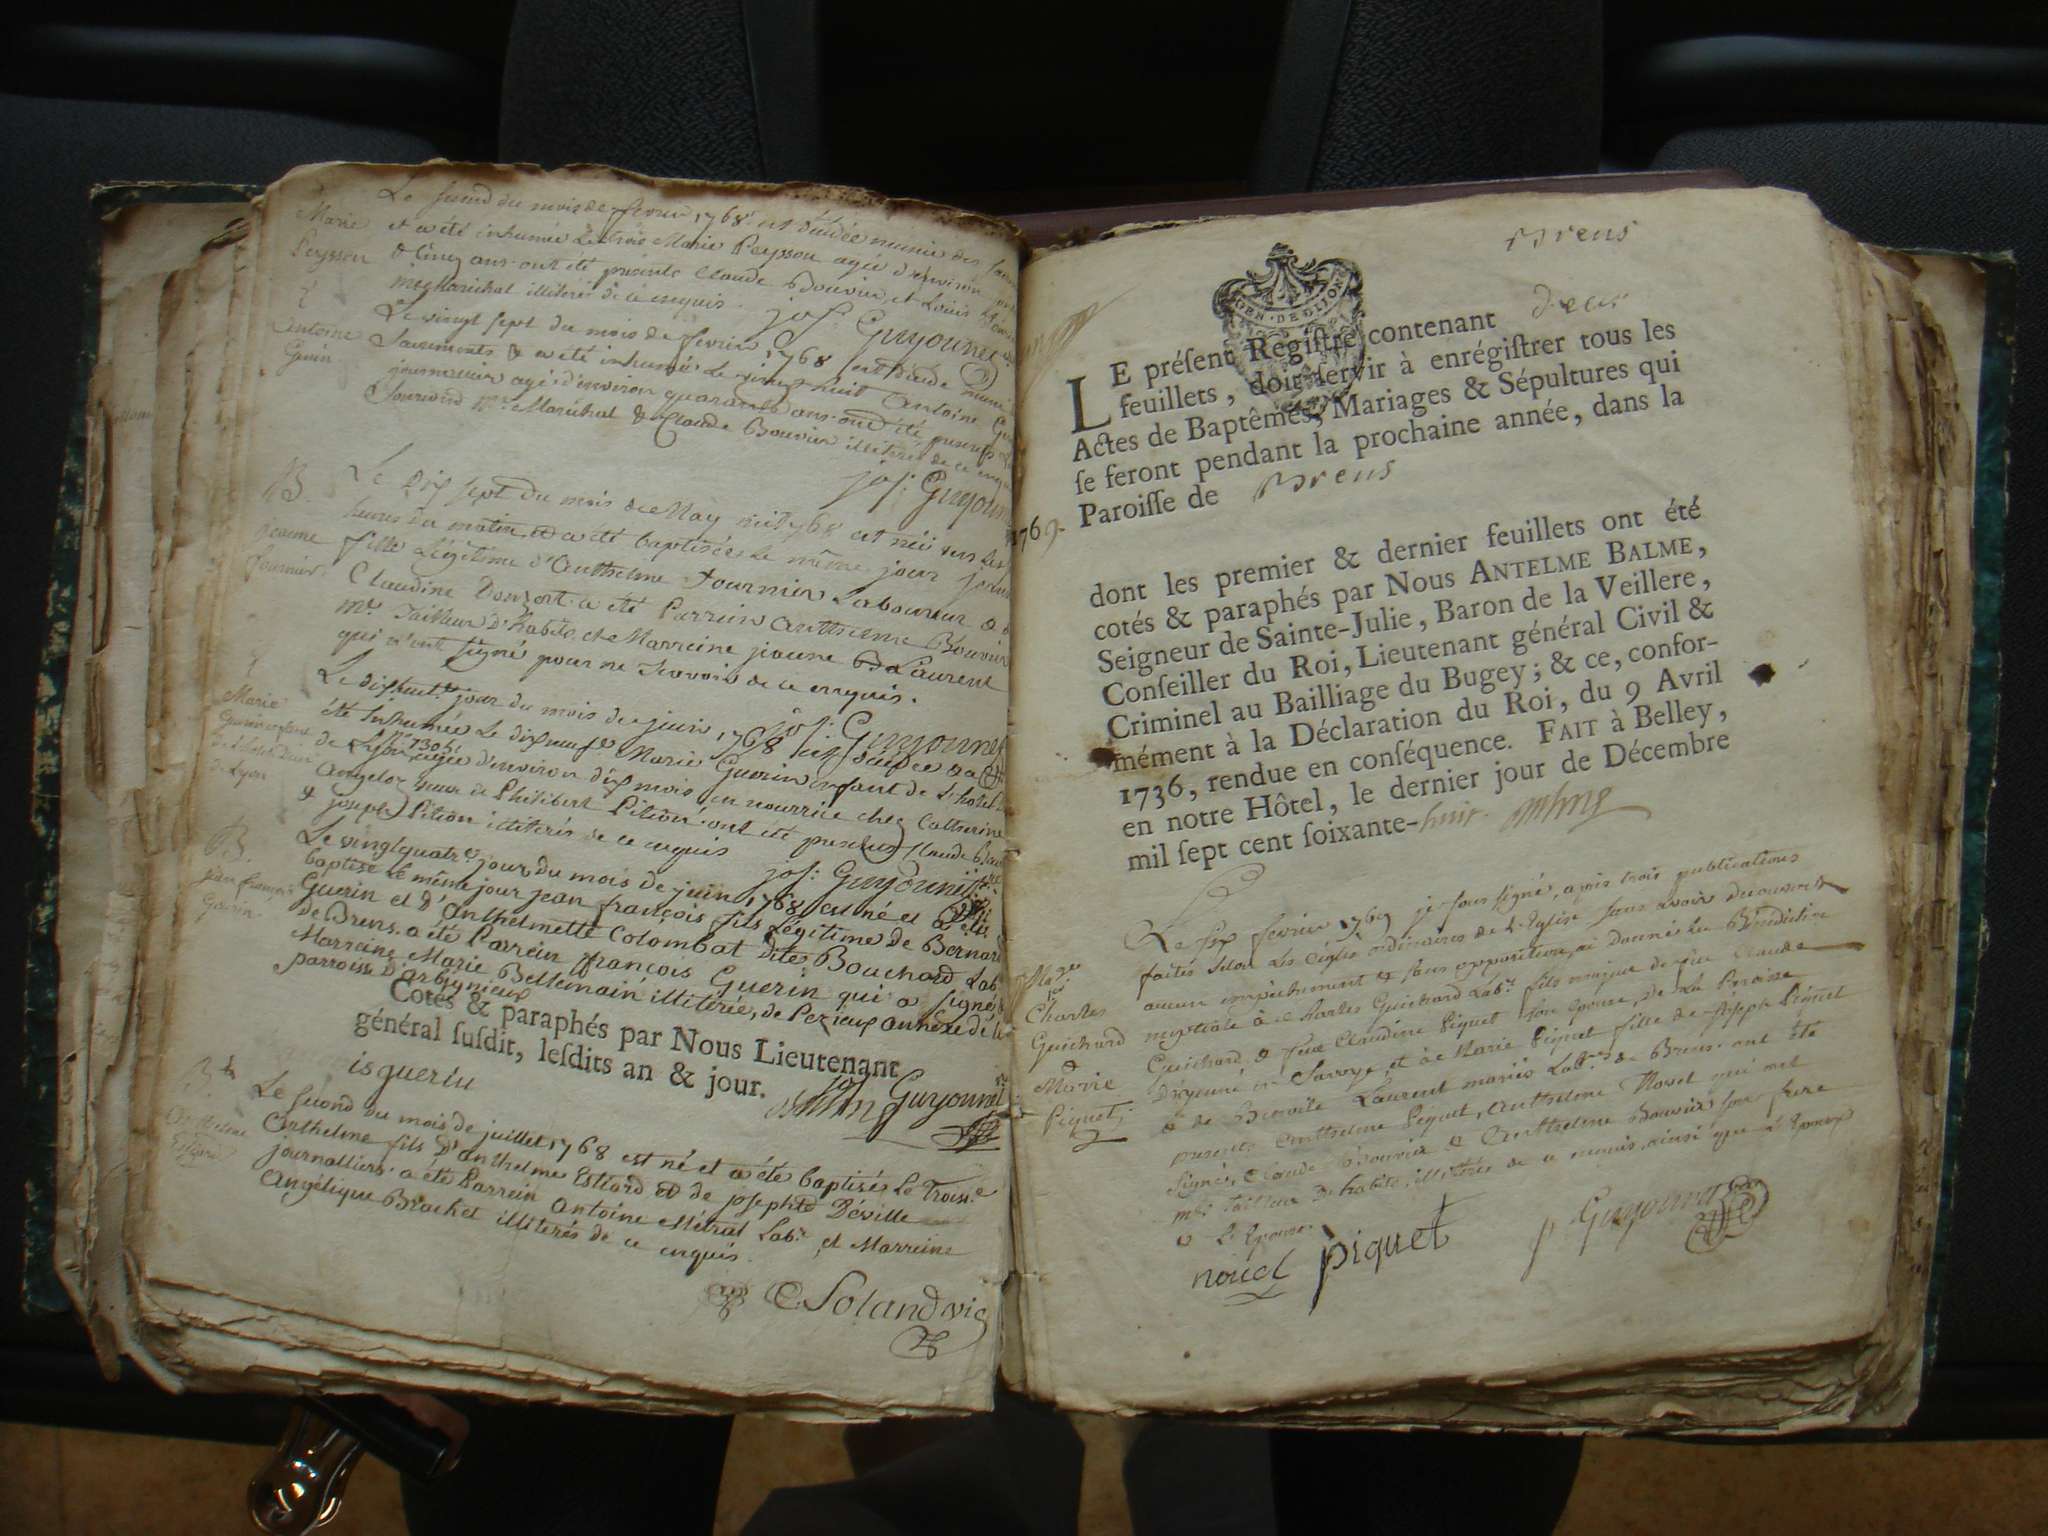 Le second du mois de fevrier 1768 est décédée munie des
Marie
Peysson
et a été inhumée Le trois Marie Peysson agée d'environ
& Cinq ans. ont été présents Claude Bouvier et Louis
Maréchal illiterés de ce enquis. jos: Guyonnet
Antoine
Guerin
Le vingt sept du mois de fevrier 1768 est décédé muni
Sacrements & a été inhumé Le vingt huit Antoine
journallier agé d'environ quarante ans. ont été présents
Maréchal & Claude Bouvier illiterés de ce enquis
jos: Guyonnet
B.
jeanne
fournier
Le dix sept du mois de May mil 768 est née vers les
heures du matin et a été baptisée Le même jour
fille Légitime d'Anthelme fournier Laboureur &
Claudine Donzort. a été Parrein Anthelme Bouvier
me. Tailleur d'habits et Marreine jeanne Laurent
qui n'ont signé pour ne sçavoir de ce enquis.
jos: Guyonnet
Marie
Guerin enfant
de Lyon
Le dixhuit jour du mois de juin 1768 est décédée & a
été inhumée Le dixneuf Marie Guerin enfant de L'hotel
de Lyon agée d'environ dix mois en nourrice chez Catherine
veuve de Philibert Pition. ont été présents Claude
& joseph Pition illiterés de ce enquis jos: Guyonnet
B.
jean françois
Guerin.
Le vingtquatre. jour du mois de juin 1768 est né et a été
baptisé Le même jour jean françois fils Légitime de Bernard
Guerin et d'Anthelmette Colombat dite Bouchard Lab.
de Brens. a été Parrein françois Guerin qui a signé,
Marreine Marie Bellemain illiterée, de Pezieux annexe de
parroisse D'arbignieux
Cotés & paraphés par Nous Lieutenant
général ſuſdit, leſdits an & jour.
is guerin
Guyonnet
Anthelme
Le second du mois de juillet 1768 est né et a été baptisés Le Trois.e
Anthelme fils D'anthelme Estiord et de josephte Déville
journalliers. a été Parrein Antoine Métral Labr. et Marreine
Angélique Brachet illiterés de ce enquis.
C. Soland vic
Brens
GEN. DE DIJON
LE préſent Regiſtre contenant deux
feuillets, doit ſervir à enrégiſtrer tous les
Actes de Baptêmes, Mariages & Sépultures qui
ſe feront pendant la prochaine année, dans la
Paroiſſe de Brens
1769.
dont les premier & dernier feuillets ont été
cotés & paraphés par Nous ANTELME BALME,
Seigneur de Sainte-Julie, Baron de la Veillere,
Conſeiller du Roi, Lieutenant général Civil &
Criminel au Bailliage du Bugey; & ce, confor-
mément à la Déclaration du Roi, du 9 Avril
1736, rendue en conſéquence. FAIT à Belley,
en notre Hôtel, le dernier jour de Décembre
mil ſept cent ſoixante-huit.
Mages
Charles
Guichard
&
Marie
Piquet
Le six fevrier 1769 je sous signé, après trois publications
faites selon les règles ordinaires de L'Eglise sans avoir découvert
aucun empêchement & sans opposition, ai donné La Bénédiction
nuptiale à Charles Guichard Labr. fils majeur de feu Claude
Guichard, & feue Claudine Piquet son Epouse, de La Paroisse
en Savoye, et à Marie Piquet fille de joseph Piquet
& de Laurent mariés Labrs. de Brens. ont été
présents Anthelme Piquet, Anthelme Novel qui ont
signés, Claude Bouvier & Anthelme Bouvier son frere
me. Tailleur D'habits, illiterés de ce enquis, ainsi que L'Epoux
& L'Epouse.
novel piquet Guyonnet